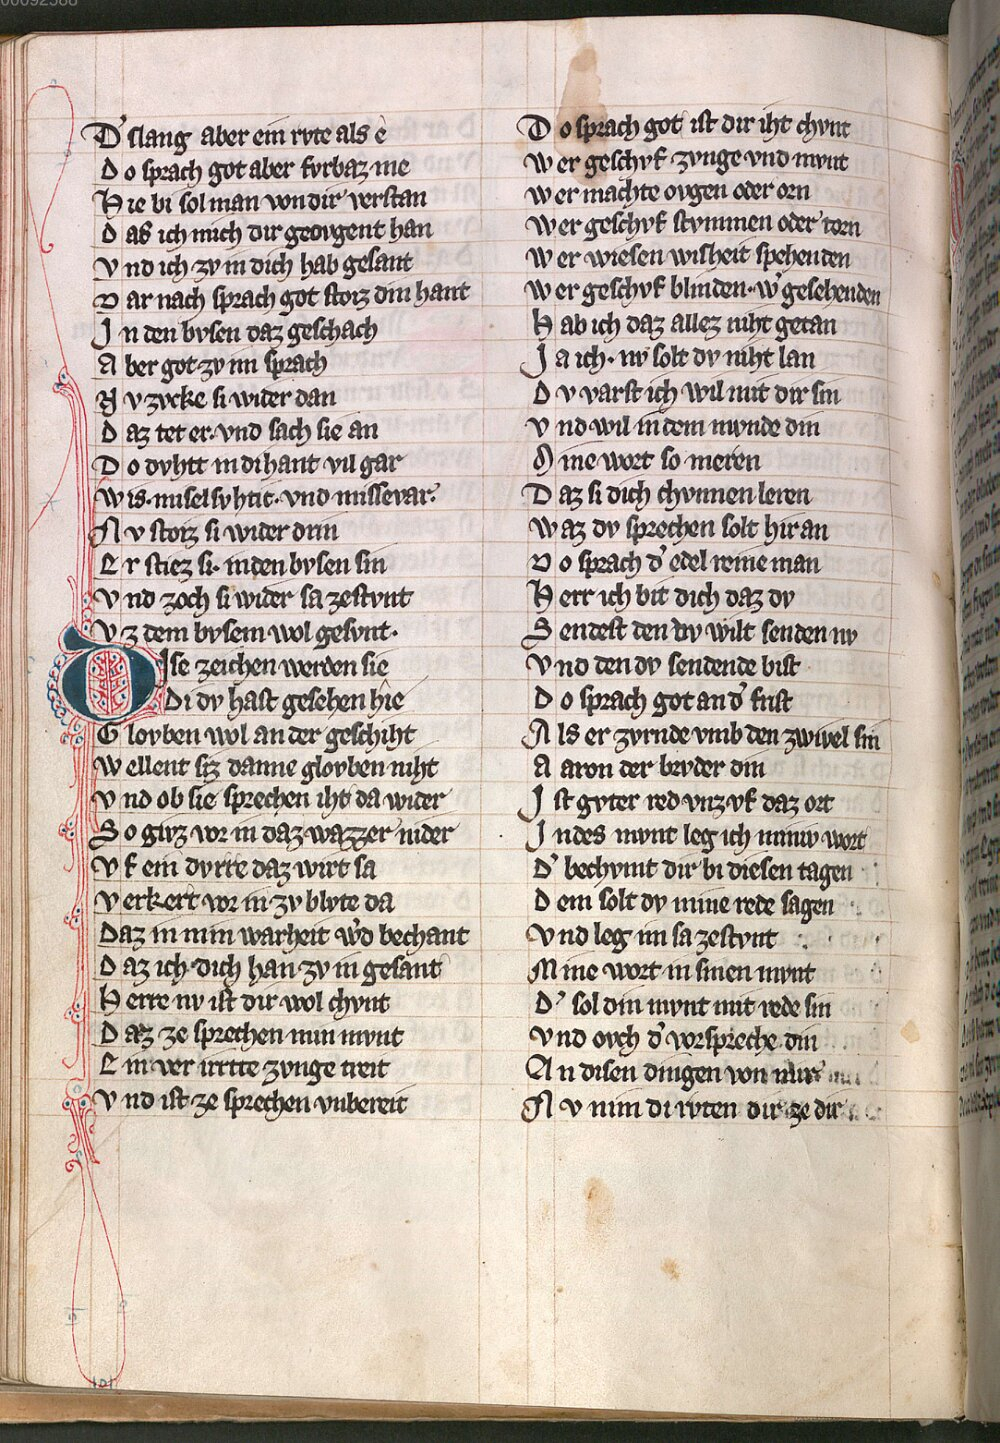 00092588
D' slang aber ein rvte als e
Do sprach got aber fvrbaz me
Hie bi sol man von dir verstan
Daß ich mich dir georgent han
Vnd ich zv in dich hab gesant
Dar nach sprach got stoiz din hant
In den bvsen daz geschach
Aber got zv im sprach
Nv zvcke si wider dan
Daz tet er· vnd sach sie an
Do dvhtt in di hant vil gar
Wis· miselsvhtic· vnd missevar·
Nv stoiz si wider drin
Er stiez si· in den bvsen sin
Vnd zoch si wider sa zestvnt
Vz dem bvsem wol gesvnt·
Dise zeichen werden sie
Di dv hast gesehen hie
Glovben wol an der geschiht
Wellent siz danne glovben niht
Vnd ob sie sprechen iht da wider
So givz vor in daz wazzer nider
Vf ein dvrre daz wirt sa
Verkert vor in· zv blvte da
Daz in min warheit w'd bechant
Daz ich dich han zv in gesant
Herre nv ist dir wol chvnt
Daz ze sprechen min mvnt
Ein ver irrtte zvnge treit
Vnd ist ze sprechen vnbereit
Do sprach got ist dir iht chvnt
Wer geschvf zvnge vnd mvnt
Wer machte ovgen oder orn
Wer geschvf stvmmen oder torn
Wer wiesen wisheit spehenden
Wer geschvf blinden· w' gesehenden
Hab ich daz allez niht getan
Ja ich· nv solt dv niht lan
Dv varst ich wil mit dir sin
Vnd wil in dem mvnde din
Mine wort so meren
Daz si dich chvnnen leren
Waz dv sprechen solt hir an
Do sprach d' edel reine man
Herr ich bit dich daz dv
Sendest den dv wilt senden nv
Vnd den dv sendende bist
Do sprach got an d' frist
Als er zvrnde vmb den zwivel sin
Aaron der brvder din
Ist gvter red vnz vf daz ort
In des mvnt leg ich miniv wort
D' bechvmt dir bi diesen tagen
Dem solt dv mine rede sagen
Vnd leg im sa zestvnt
Mine wort in sinen mvnt
D' sol din mvnt mit rede sin
Vnd ovch d' vorspreche din
An disen dingen von mir
Nv nim di rvten dir· ze dir